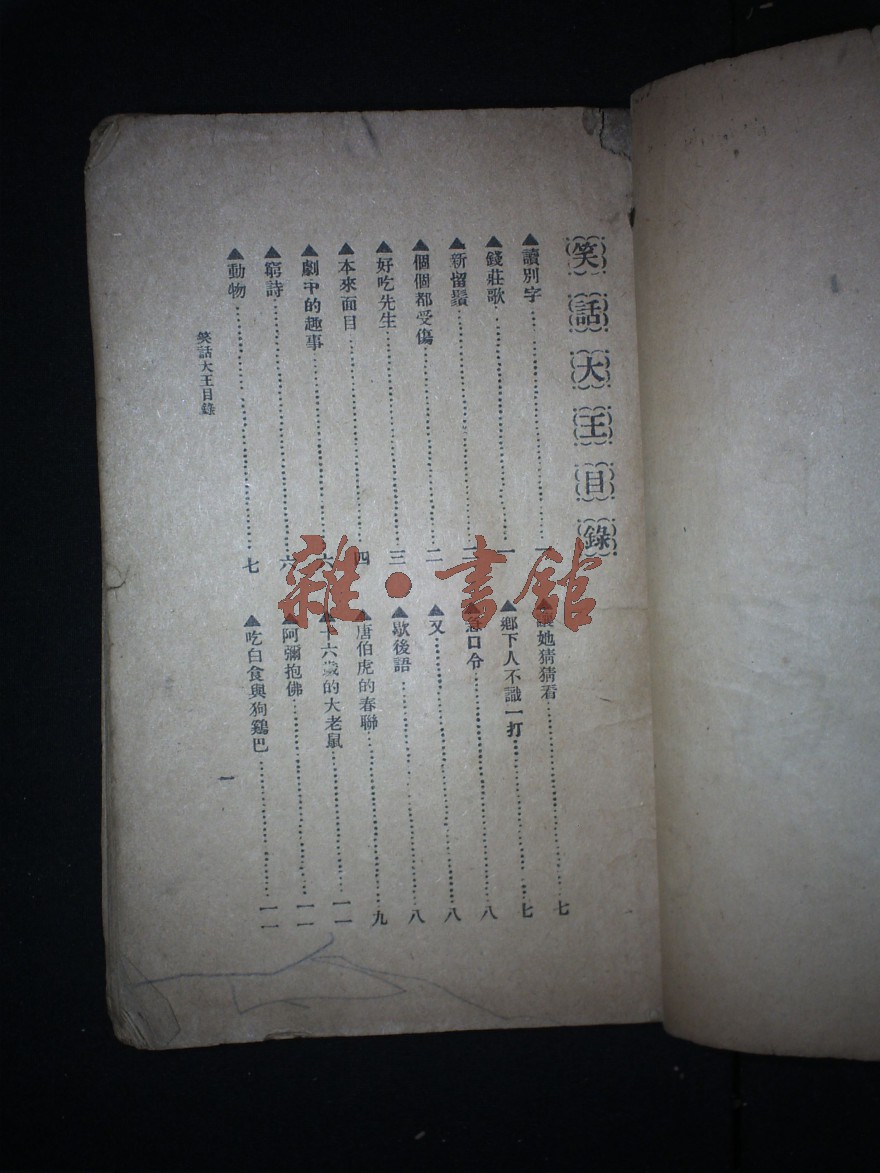 笑話大王目錄
▲讀別字……一
▲錢莊歌……一
▲新留鬚……二
▲個個都受傷……二
▲好吃先生……三
▲本來面目……四
▲劇中的趣事……六
▲窮詩……六
▲動物……七
她猜猜看……七
▲鄉下人不識一打……七
▲急口令……八
▲又……八
▲歇後語……八
▲唐伯虎的春聯……九
▲十六歲的大老鼠……一一
▲阿彌抱佛……一一
▲吃白食與狗鷄巴……一一
笑話大王目錄
一
雜·書館